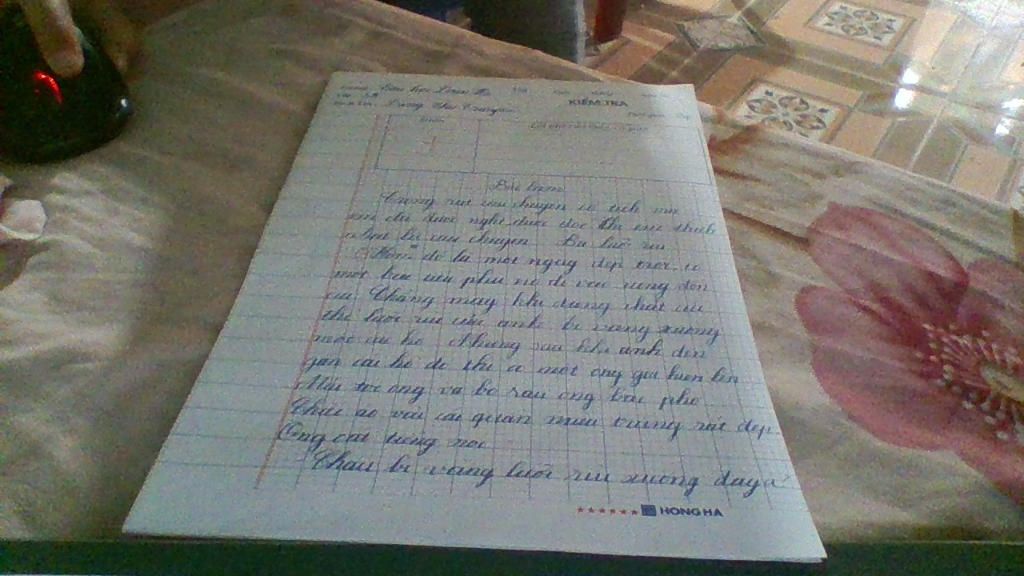 KIỂM TRA
Bài làm
Trong các câu chuyện cổ tích mà
em đã được nghe, được đọc thì em thích
nhất là câu chuyện Ba lưỡi rìu
Hôm đó là một ngày đẹp trời, có
một bác tiều phu nọ đi vào rừng đốn
củi. Chẳng may khi đang chặt củi
thì lưỡi rìu của anh bị văng xuống
một cái hồ. Nhưng sau khi anh đến
gần cái hồ đó thì có một ông già hiện lên
Mái tóc ông và bộ râu ông bạc phơ
Chiếc áo với cái quần màu trắng rất đẹp.
Ông cất tiếng nói
Cháu bị văng lưỡi rìu xuống đây à?
HONG HA